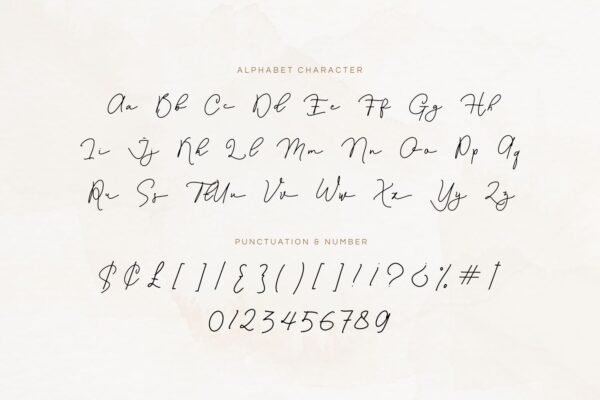 ALPHABET CHARACTER
Aa Bb Cc Dd Ee Ff Gg Hh
Ii Jj Kk Ll Mm Nn Oo Pp Qq
Rr Ss Tt Uu Vv Ww Xx Yy Zz
PUNCTUATION & NUMBER
$ ₵ £ [ ] / { } ( ) [ ] ! ¡ ? ¿ % # †
0123456789